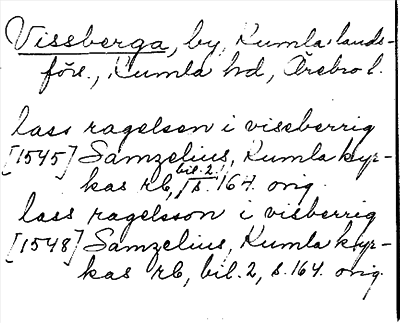 Vissberga, by, Kumla lands-
förs., Kumla hd, Örebro l.
lass ragelson i viseberrig
[1545] Samzelius, Kumla kyr-
kas rb, bil. 2, s. 164. orig.
lass ragelsson i visberrig
[1548] Samzelius, Kumla kyr-
kas rb, bil. 2, s. 164. orig.